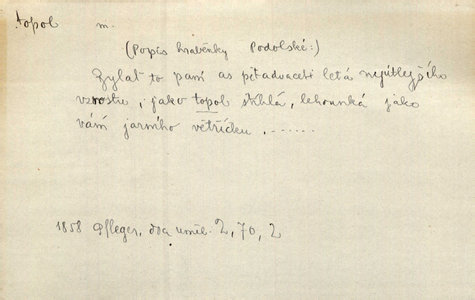 topol m.
(Popis hraběnky Podolské:)
Bylať to paní as pětadvaceti letá nejútlejšího
vzrostu, jako topol štíhlá, lehounká jako
vání jarního větříčku, ......
1858 Pfleger, Dva uměl. 2, 70, 2